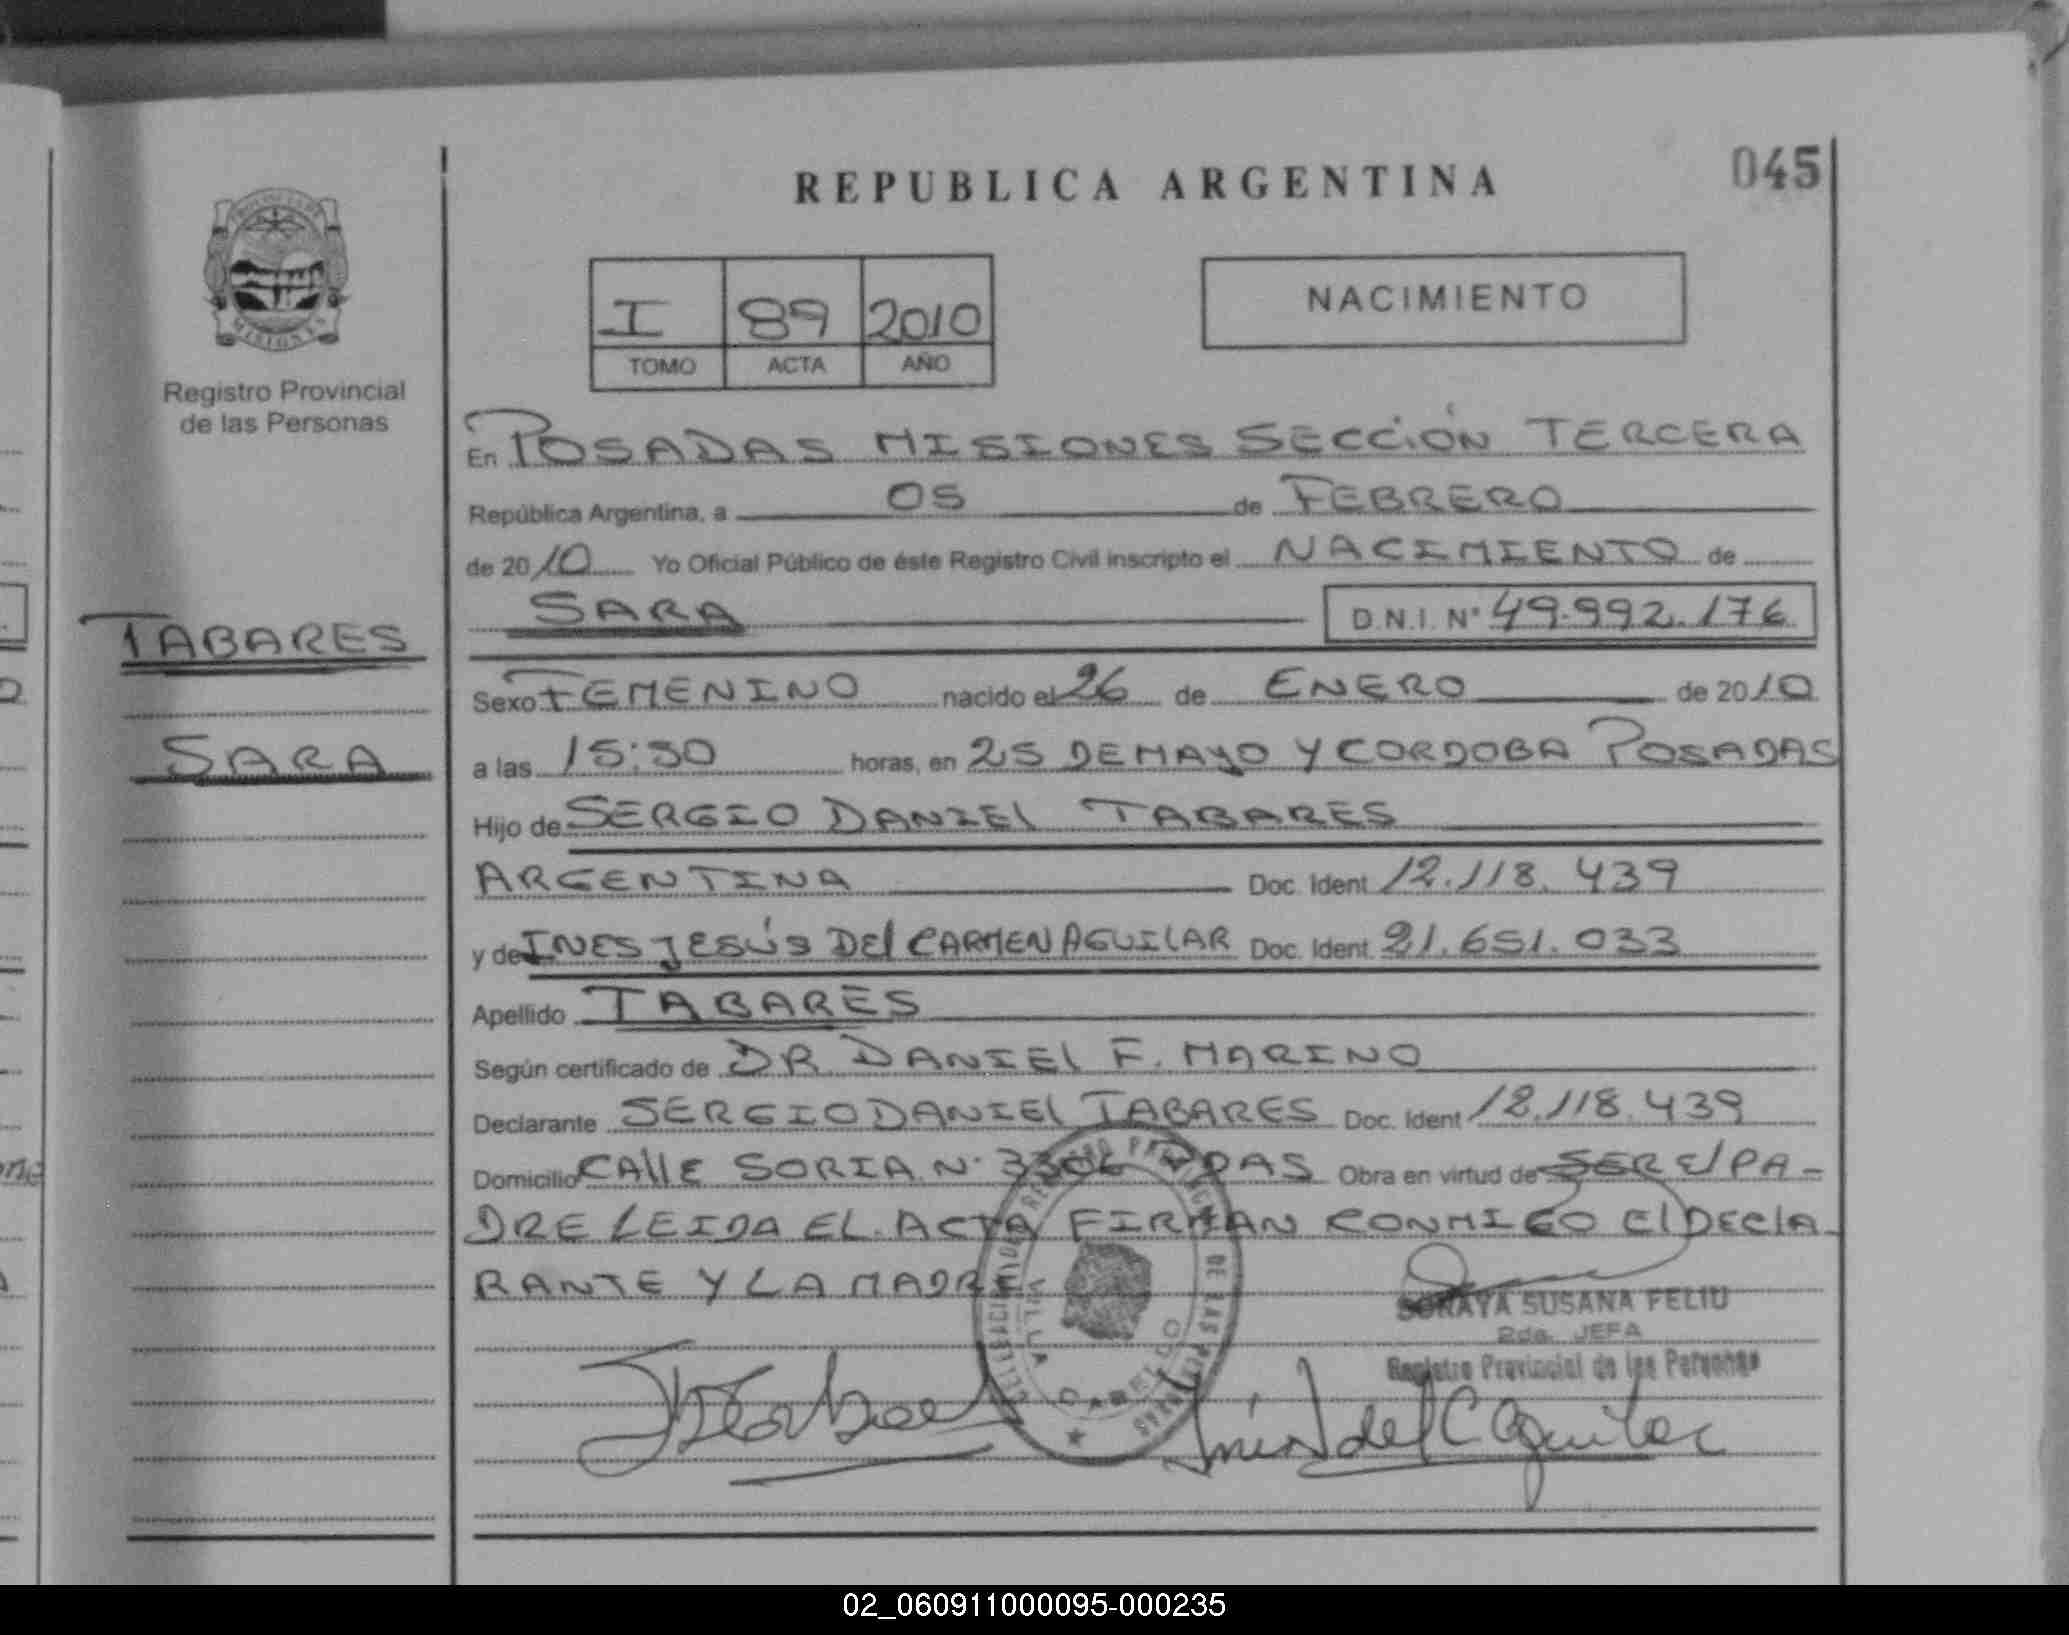 REPUBLICA ARGENTINA
045
PROVINCIA DE
MISIONES
Registro Provincial
de las Personas
I 89 2010
TOMO ACTA AÑO
NACIMIENTO
En POSADAS MISIONES SECCIÓN TERCERA
República Argentina, a 05 de FEBRERO
de 2010 Yo Oficial Público de éste Registro Civil inscripto el NACIMIENTO de
SARA D.N.I. N° 49.992.176
TABARES
SARA
Sexo FEMENINO nacido el 26 de ENERO de 2010
a las 15:30 horas, en 25 DE MAYO Y CORDOBA POSADAS
Hijo de SERGIO DANIEL TABARES
ARGENTINA Doc. Ident 12.118.439
y de INES JESÚS DEL CARMEN AGUILAR Doc. Ident. 21.651.033
Apellido TABARES
Según certificado de DR DANIEL F. MARINO
Declarante SERGIO DANIEL TABARES Doc. Ident 12.118.439
Domicilio CALLE SORIA N° 3306 PDAS Obra en virtud de SER EL PA-
DRE LEIDA EL ACTA FIRMAN CONMIGO EL DECLA-
RANTE Y LA MADRE
SORAYA SUSANA FELIU
2da. JEFA
Registro Provincial de las Personas
VILLA CABELLO
Inés J del C Aguilar
02_060911000095-000235